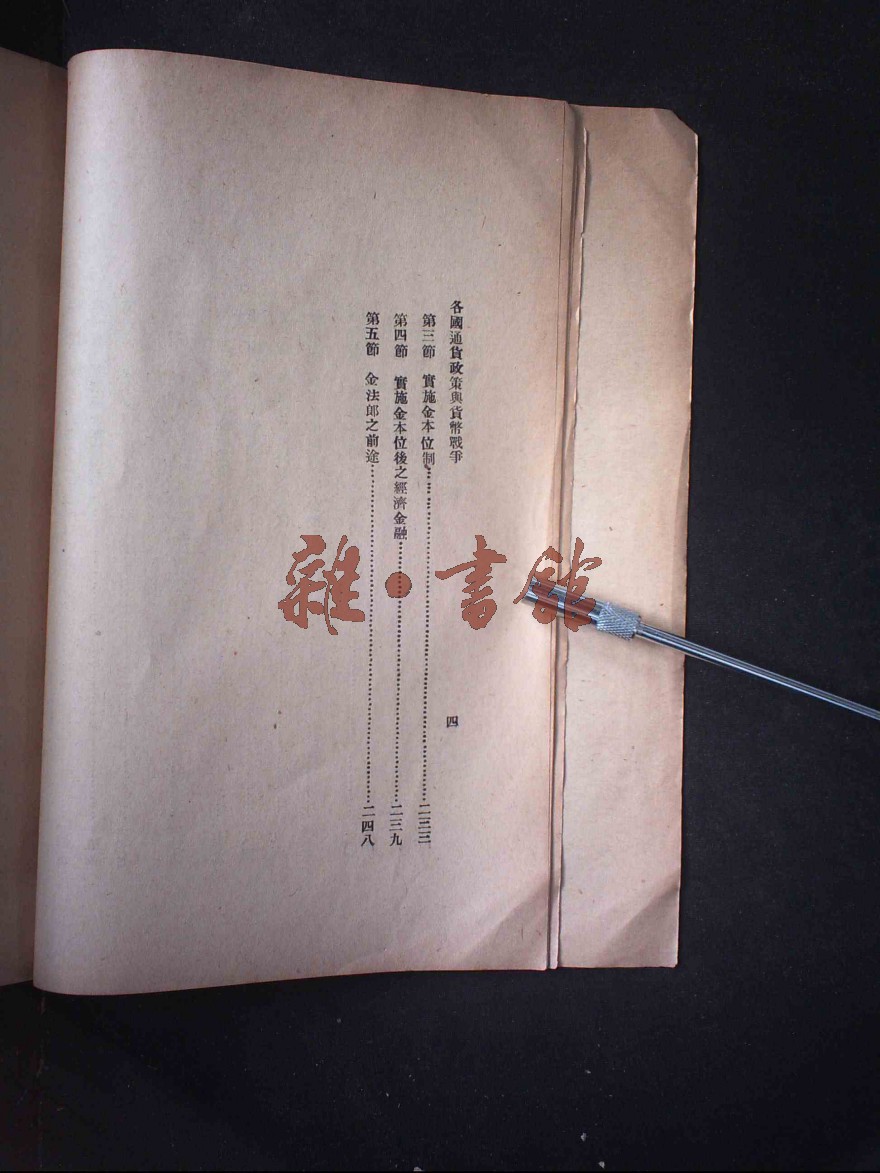 各國通貨政策與貨幣戰爭
四
第三節 實施金本位制……二三三
第四節 實施金本位後之經濟金融……二三九
第五節 金法郎之前途……二四八
雜·書館